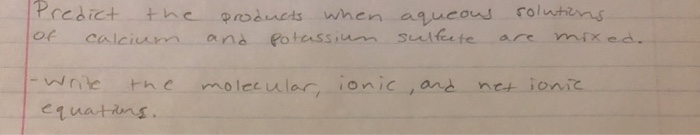 Predict the products when aqueous solutions
of calcium and potassium sulfate are mixed.
- Write the molecular, ionic, and net ionic
equations.